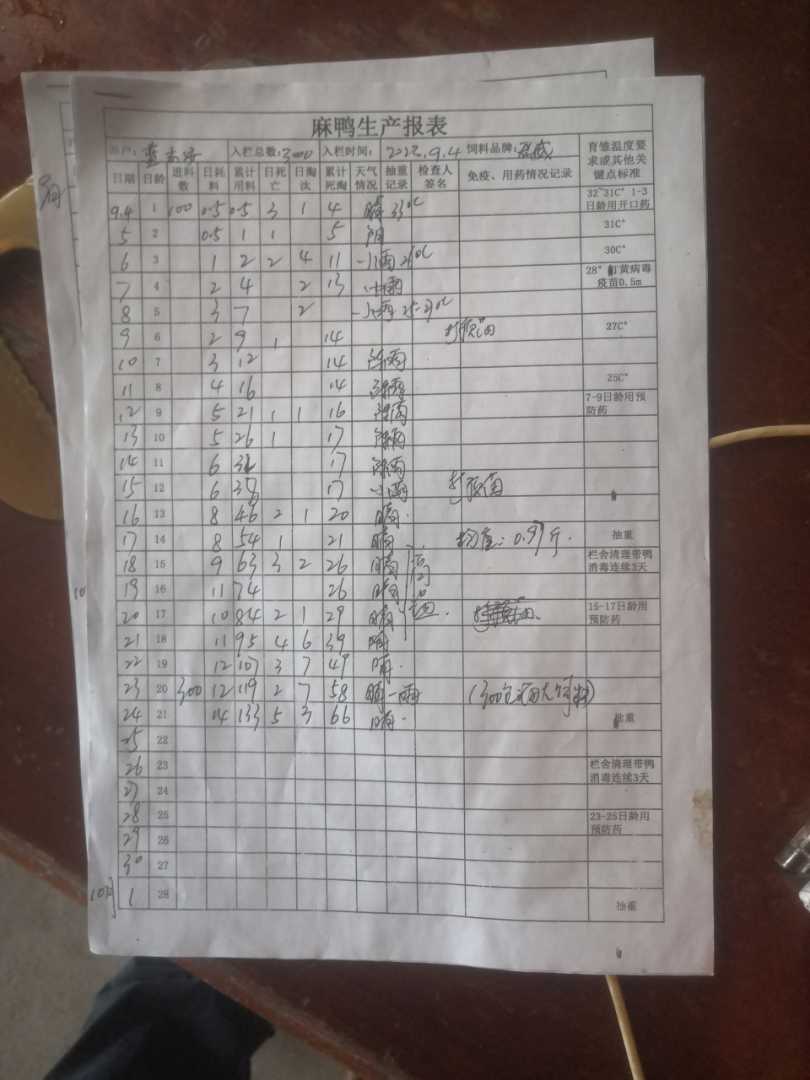 麻鸭生产报表
户: 蓝 入栏总数:3000 入栏时间: 2022.9.4 饲料品牌:
育雏温度要求或其他关键点标准
日期 日龄 进料数 日耗料 累计用料 日死亡 日淘汰 累计死淘 天气情况 抽重记录 检查人签名 免疫、用药情况记录
9.4 1 100 0.5 0.5 3 1 4 晴 33℃ 32~31C° 1-3日龄用开口药
5 2 0.5 1 1 5 阴 31C°
6 3 1 2 2 4 11 小雨 26℃ 30C°
7 4 2 4 2 13 小雨 28° 打黄病毒疫苗0.5m
8 5 3 7 2 小雨
9 6 2 9 1 14 27C°
10 7 3 12 14 阵雨
11 8 4 16 14 阵雨 25C°
12 9 5 21 1 1 16 阵雨 7-9日龄用预防药
13 10 5 26 1 17 阵雨
14 11 6 32 17 阵雨
15 12 6 38 17 小雨
16 13 8 46 2 1 20 晴.
17 14 8 54 1 21 晴 均重:0.97斤. 抽重
18 15 9 63 3 2 26 晴 栏舍清理带鸭消毒连续3天
19 16 11 74 26 晴
20 17 10 84 2 1 29 晴 15-17日龄用预防药
21 18 11 95 4 6 39 晴
22 19 12 107 3 7 49 晴.
23 20 300 12 119 2 7 58 晴-雨
24 21 14 133 5 3 66 晴. 抽重
25 22
26 23 栏舍清理带鸭消毒连续3天
27 24
28 25 23-25日龄用预防药
29 26
30 27
10月 1 28 抽重